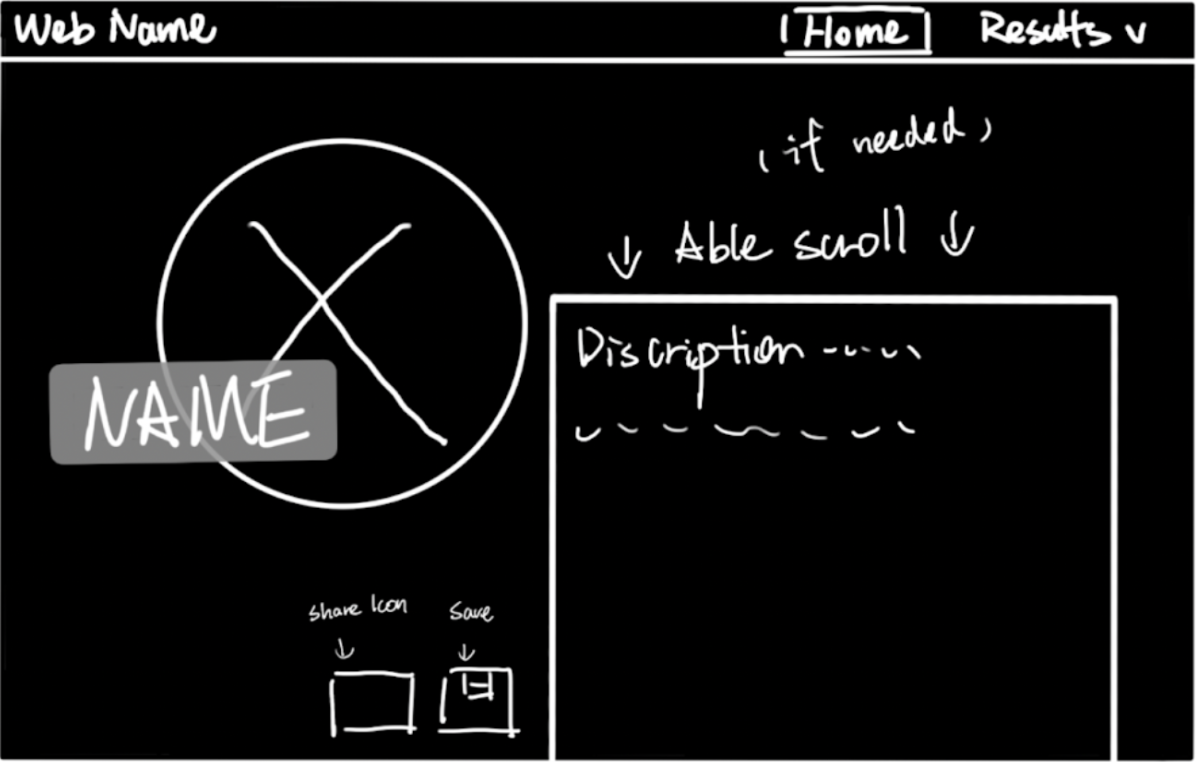 Web Name
Home
Results v
(if needed)
↓ Able scroll ↓
Discription ----
NAME
Share Icon
Save